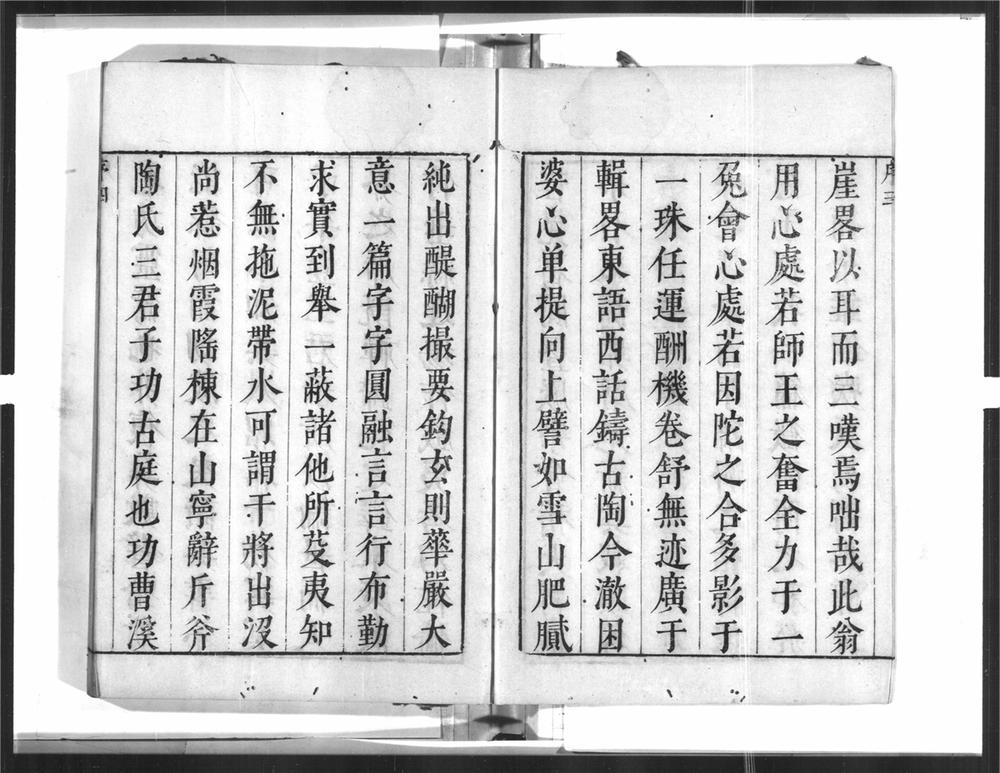 序三
崖畧以耳而三嘆焉咄哉此翁
用心處若師王之奮全力于一
兔會心處若因陀之合多影于
一珠任運酬機卷舒無迹廣于
輯畧東語西話鑄古陶今澈困
婆心单提向上譬如雪山肥膩
純出醍醐撮要鈎玄則華嚴大
意一篇字字圓融言言行布勤
求實到舉一蔽諸他所芟夷知
不無拖泥帶水可謂干將出没
尚惹烟霞隂棟在山寧辭斤斧
陶氏三君子功古庭也功曹溪
序四